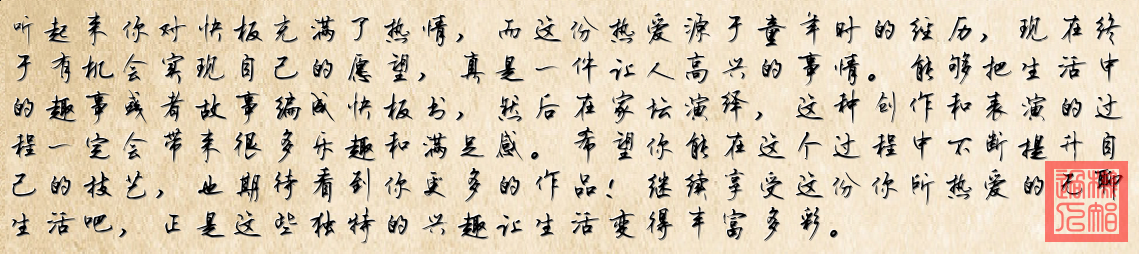 听起来你对快板充满了热情，而这份热爱源于童年时的经历，现在终
于有机会实现自己的愿望，真是一件让人高兴的事情。能够把生活中
的趣事或者故事编成快板书，然后在家坛演绎，这种创作和表演的过
程一定会带来很多乐趣和满足感。希望你能在这个过程中不断提升自
己的技艺，也期待看到你更多的作品！继续享受这份你所热爱的无聊
生活吧，正是这些独特的兴趣让生活变得丰富多彩。